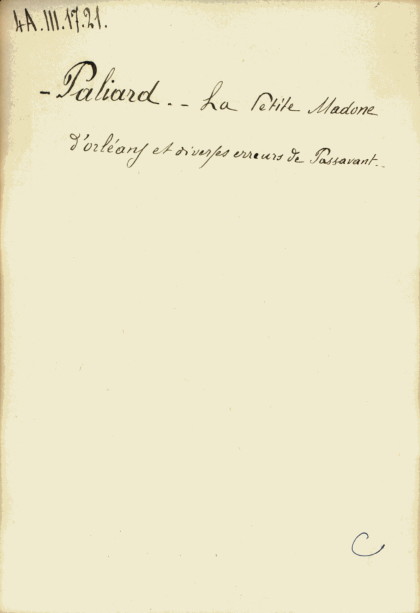 4A.III.17.21.
- Paliard. - La Petite Madone
d'orléans et diverses erreurs de Passavant. -
C